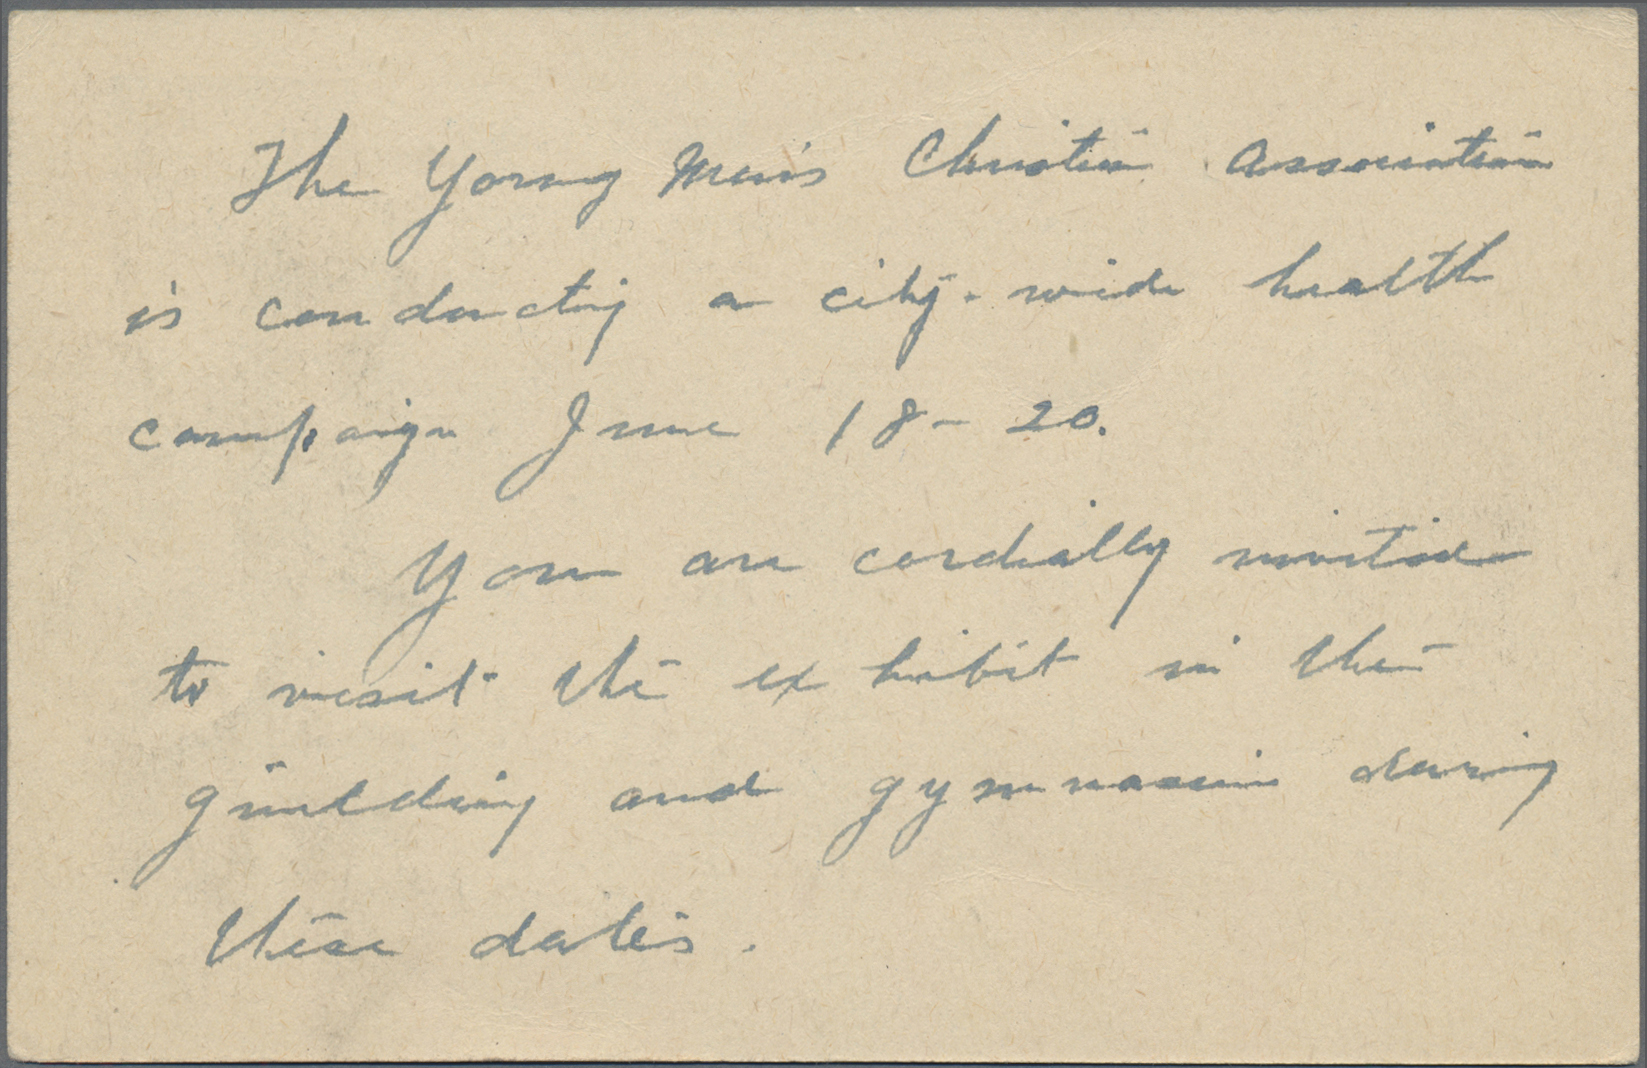 The Young Men's Christian Association
is conducting a city-wide health
campaign June 18-20.
You are cordially invited
to visit the exhibit in the
and gymnasium during
these dates.